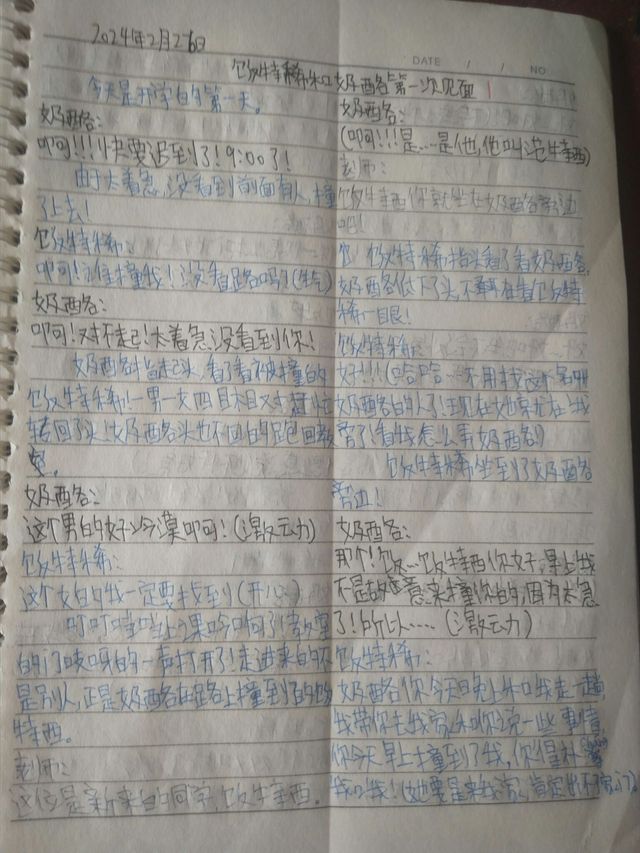 2024年2月26日
DATE / / NO
饭特稀和奶酪第一次见面
今天是开学的第一天。
奶酪:
啊!!!快要迟到了!9:00了!
由于太着急,没看到前面有人,撞
了上去!
饭特稀:
啊!谁撞我!没看路吗!(生气)
奶酪:
啊!对不起!太着急没看到你!
奶酪抬起头,看了看被撞的
饭特稀!一男一女四目相对,
转回了头!奶酪头也不回的跑回教
室。
奶酪:
这个男的好冷漠啊!(激动)
饭特稀:
这个女的我一定要找到(开心)
叮叮当当上课啦!教室
的门吱呀的一声打开了!走进来的不
是别人,正是奶酪在路上撞到了的饭
特西。
老师:
这位是新来的同学,饭特西。
奶酪:
(啊!!!是……是他,他叫范特西)
老师:
饭特西你就坐在奶酪旁边
吧!
饭特稀抬头看了看奶酪,
奶酪低下了头,不敢在看饭特
稀一眼!
饭特稀:
好!!!(哈哈…不用找这个名叫
奶酪的人了!现在她就在我
旁了!看我怎么弄奶酪)
饭特稀坐到了奶酪
旁边!
奶酪:
那个!饭…饭特西你好,早上我
不是故意来撞你的,因为太急
了!所以……(激动)
饭特稀:
奶酪你今天晚上和我走一趟
我带你去我家和你说一些事情
你今天早上撞到了我,你得补偿
我!(她要是来我家,肯定出不了家门)